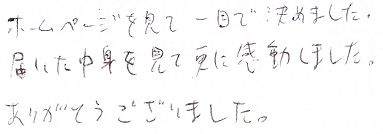 ホームページを見て一目で決めました。
届いた中身を見て更に感動しました。
ありがとうございました。